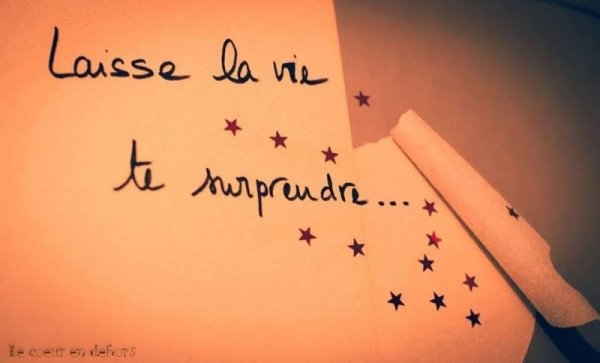 Laisse la vie
te surprendre...
Le coeur en dehors